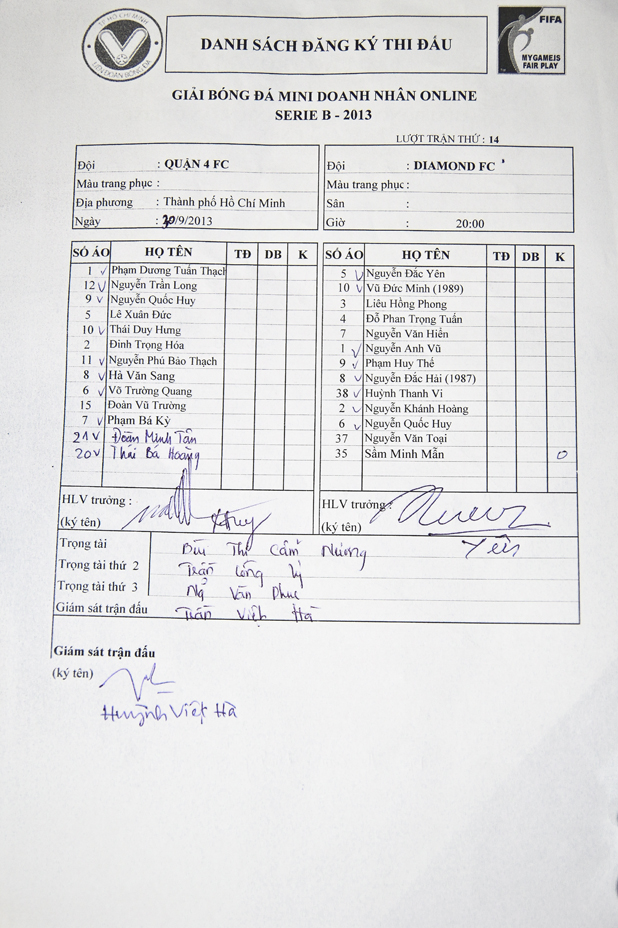 TP HỒ CHÍ MINH
LIÊN ĐOÀN BÓNG ĐÁ
DANH SÁCH ĐĂNG KÝ THI ĐẤU
FIFA
MY GAME IS FAIR PLAY
GIẢI BÓNG ĐÁ MINI DOANH NHÂN ONLINE
SERIE B - 2013
LƯỢT TRẬN THỨ : 14
Đội : QUẬN 4 FC
Màu trang phục :
Địa phương : Thành phố Hồ Chí Minh
Ngày : 20/9/2013
Đội : DIAMOND FC
Màu trang phục :
Sân :
Giờ : 20:00
SỐ ÁO HỌ TÊN TĐ DB K
1 v Phạm Dương Tuấn Thạch
12 v Nguyễn Trần Long
9 v Nguyễn Quốc Huy
5 Lê Xuân Đức
10 v Thái Duy Hưng
2 Đinh Trọng Hóa
11 v Nguyễn Phú Bảo Thạch
8 v Hà Văn Sang
6 v Võ Trường Quang
15 Đoàn Vũ Trường
7 v Phạm Bá Kỳ
21 v Đoàn Minh Tân
20 v Thái Bá Hoàng
HLV trưởng :
(ký tên) Huy
SỐ ÁO HỌ TÊN TĐ DB K
5 v Nguyễn Đắc Yên
10 v Vũ Đức Minh (1989)
3 Liêu Hồng Phong
4 Đỗ Phan Trọng Tuấn
7 Nguyễn Văn Hiền
1 v Nguyễn Anh Vũ
9 v Phạm Huy Thế
8 v Nguyễn Đắc Hải (1987)
38 v Huỳnh Thanh Vi
2 v Nguyễn Khánh Hoàng
6 v Nguyễn Quốc Huy
37 Nguyễn Văn Toại
35 Sầm Minh Mẫn 0
HLV trưởng :
(ký tên)
Yên
Trọng tài Bùi Thị Cẩm Nương
Trọng tài thứ 2 Trần Công Lý
Trọng tài thứ 3 Văn Phục
Giám sát trận đấu Trần Việt Hà
Giám sát trận đấu
(ký tên)
Huỳnh Việt Hà